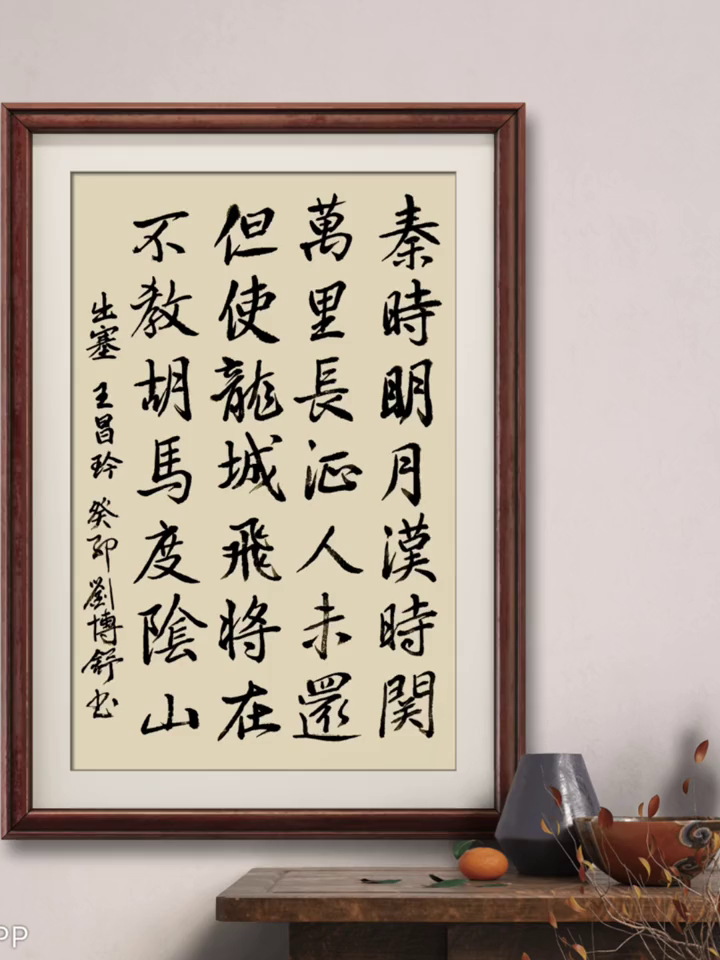 秦時明月漢時関
萬里長征人未還
但使龍城飛將在
不教胡馬度陰山
出塞 王昌玲 癸卯 劉博舒书
PP